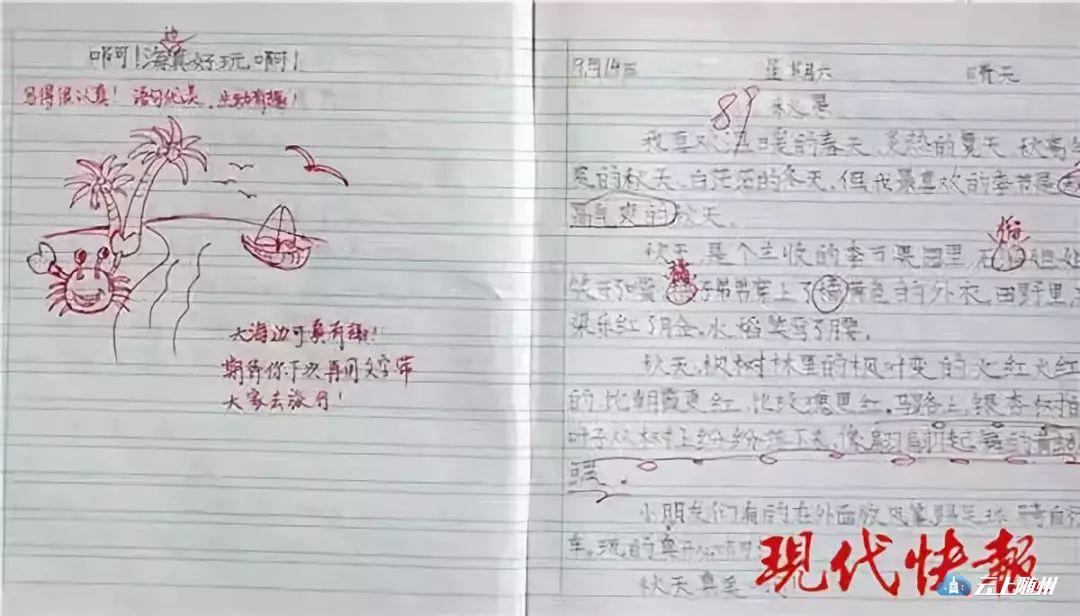 地
啊!海真好玩啊!
写得很认真!语句优美,生动有趣!
大海边可真有趣!
期待你下次再用文字带
大家去旅行!
9月14日 星期六 晴天
89
秋景
我喜欢温暖的春天,炎热的夏天,秋高气
爽的秋天,白茫茫的冬天,但我最喜欢的季节是秋
高气爽的秋天。
秋天,是个丰收的季节果园里,石
橘
笑开了嘴 子弟弟穿上了橘黄色的外衣,田野里高
粱乐红了脸,水稻笑弯了腰。
秋天,枫树林里的枫叶变的火红火红
的,比朝霞更红,比玫瑰更红。马路上,银杏树
叶子从树上纷纷落下来,像翩翩起舞的黄蝴
蝶。
小朋友们有的在外面放风筝踢足球 骑自行
车,玩的真开心
秋天真美
现代快報
云上随州